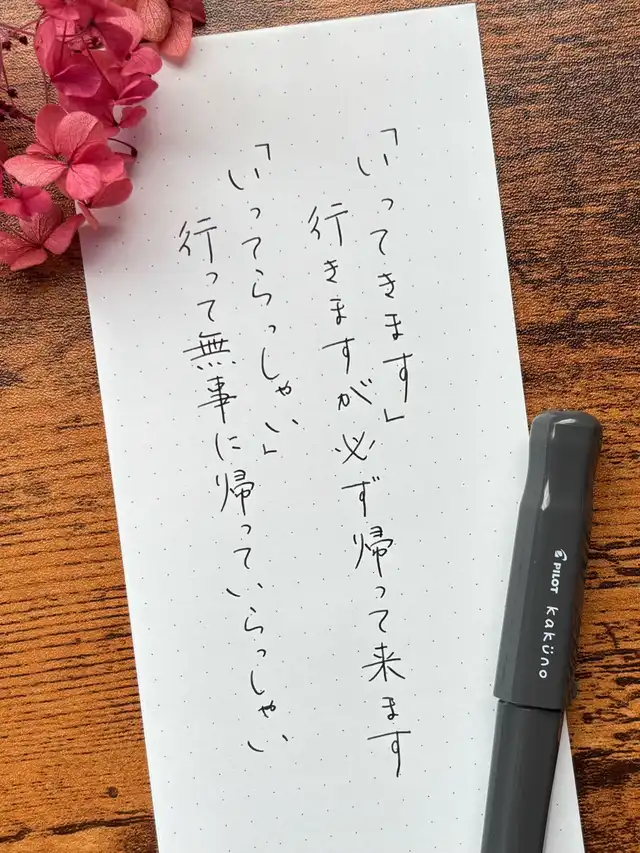 「いってきます」
行きますが必ず帰って来ます
「いってらっしゃい」
行って無事に帰っていらっしゃい
PILOT kaküno